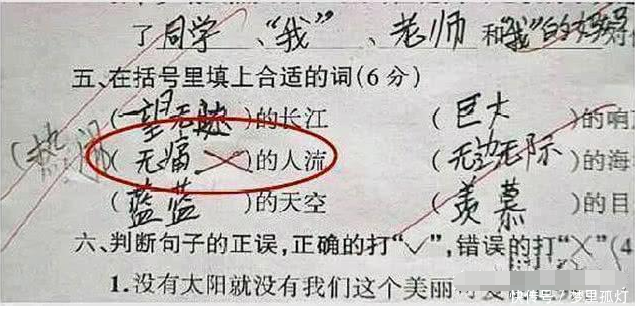 了同学、“我”、老师和“我”的妈妈对
五、在括号里填上合适的词(6分)
(一望无际)的长江 (巨大)的响
(无痛)的人流 (无边无际)的海
(热闹
(蓝蓝)的天空 (羡慕)的目
六、判断句子的正误,正确的打“✓”,错误的打“╳”(4
1.没有太阳就没有我们这个美丽可爱
快传号/梦里孤灯